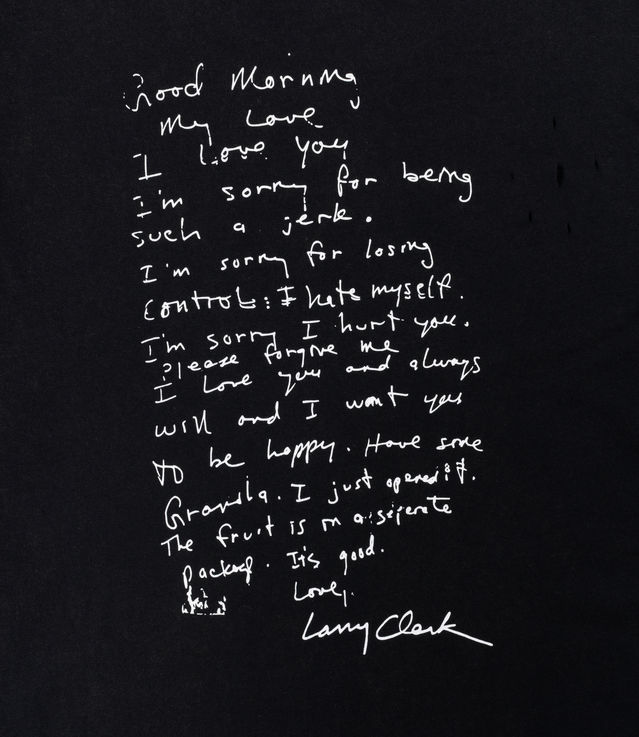 Good Morning
My Love
I Love you
I'm sorry for being
such a jerk.
I'm sorry for losing
control: I hate myself.
I'm sorry I hurt you.
Please forgive me
I Love you and always
will and I want you
to be happy. Have some
Granola. I just opened it.
The fruit is in a seperate
package. It's good.
Love,
Larry Clark